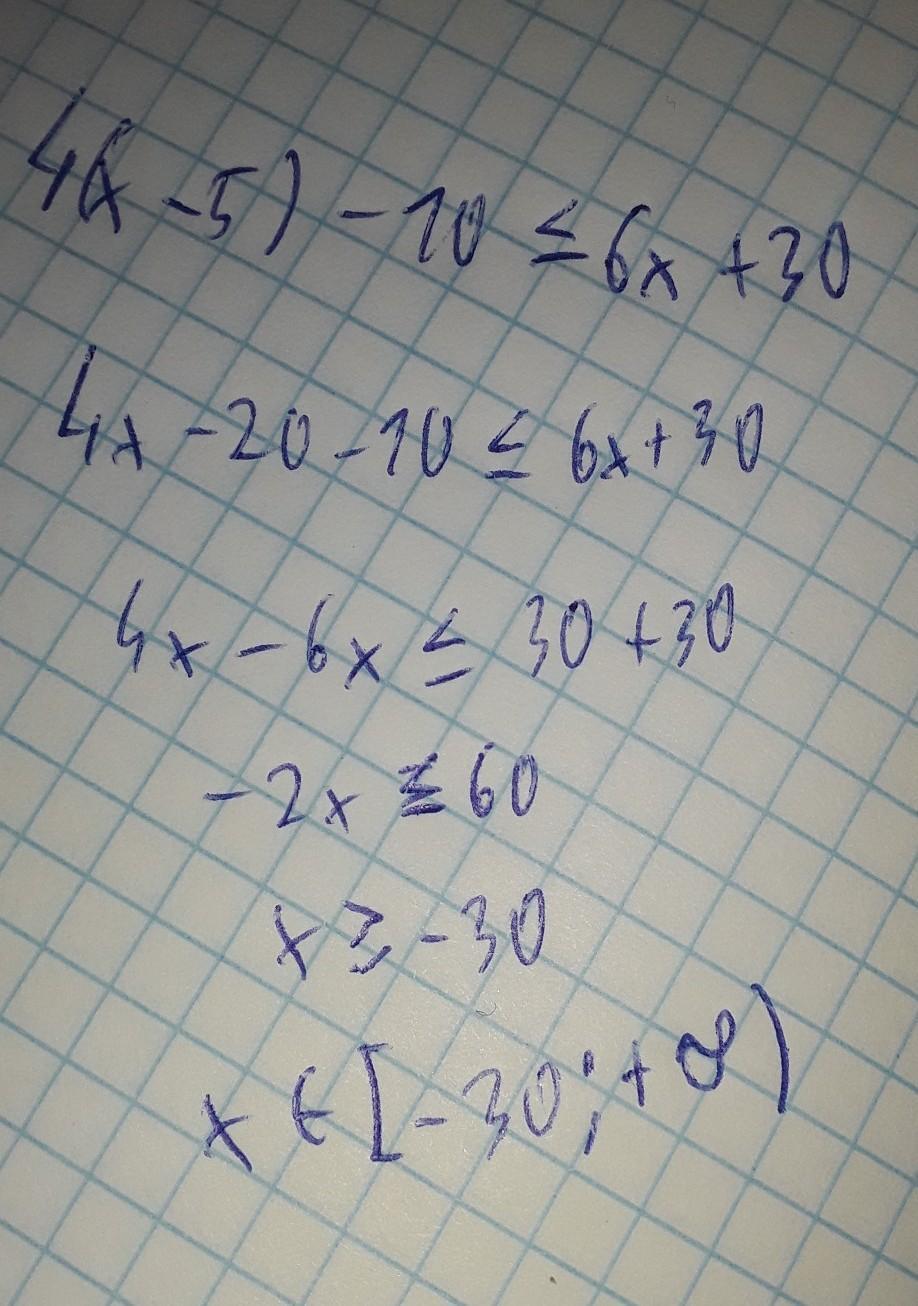 4(x-5)-10≤6x+30
4x-20-10≤6x+30
4x-6x≤30+30
-2x≤60
x≥-30
x∈[-30;+∞)